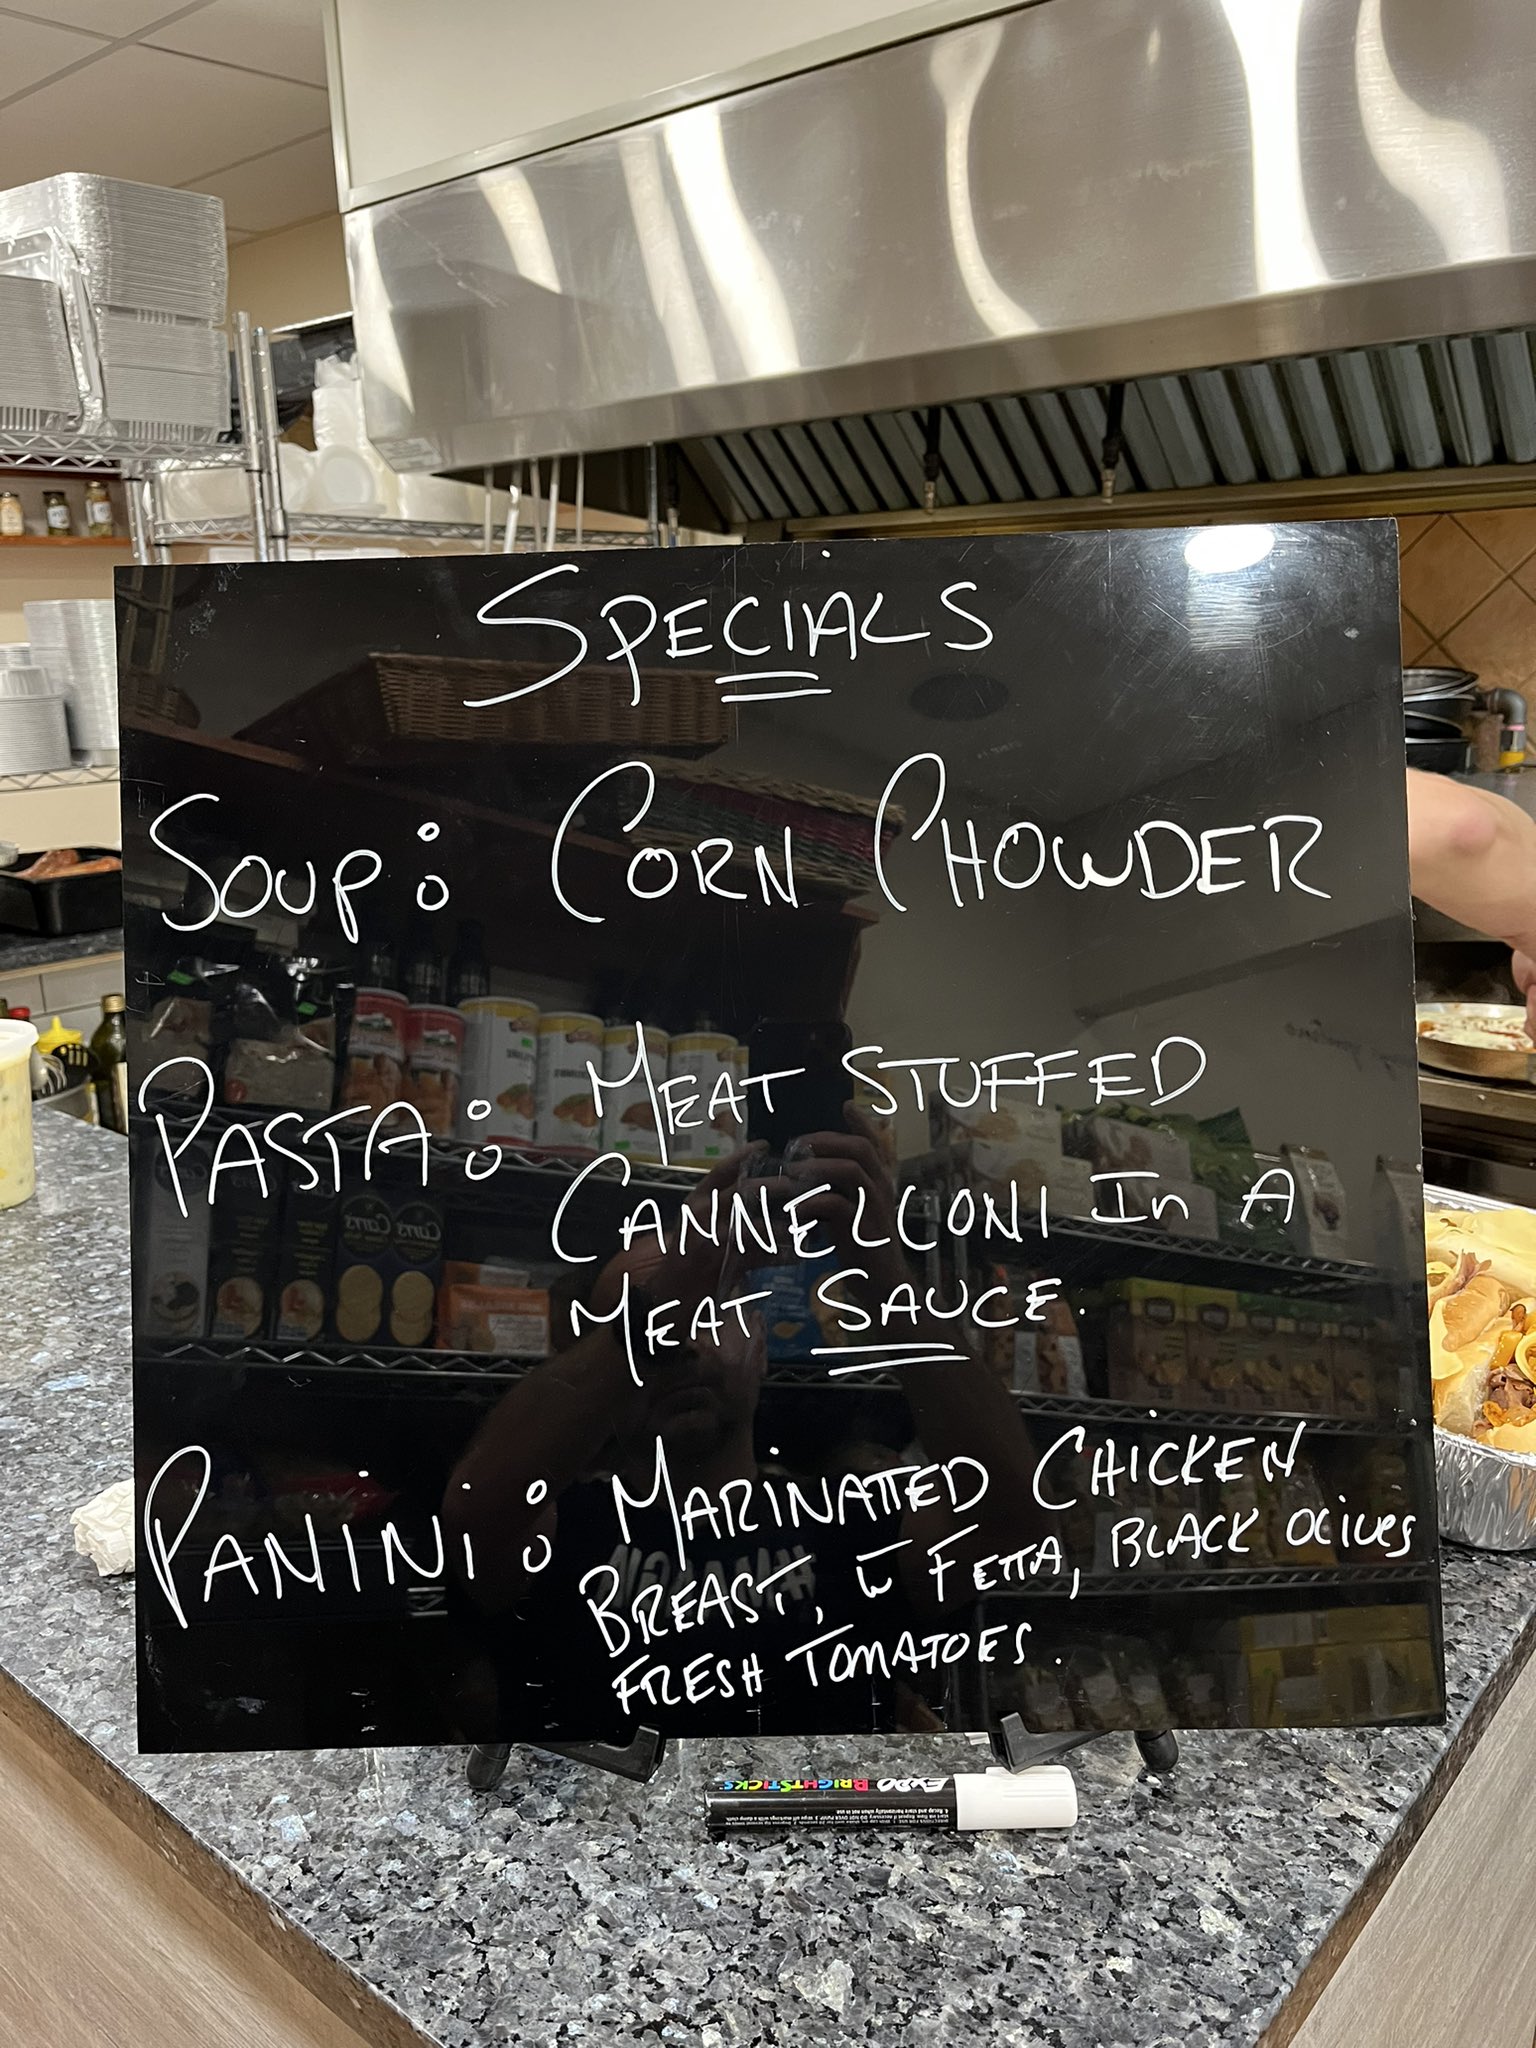 SPECIALS
SOUP: CORN CHOWDER
PASTA: MEAT STUFFED
CANNELLONI In A
MEAT SAUCE.
PANINI: MARINATTED CHICKEN
BREAST, w FETTA, BLACK OLIVES
FRESH TOMATOES.
EXPO BRIGHTSTICKS